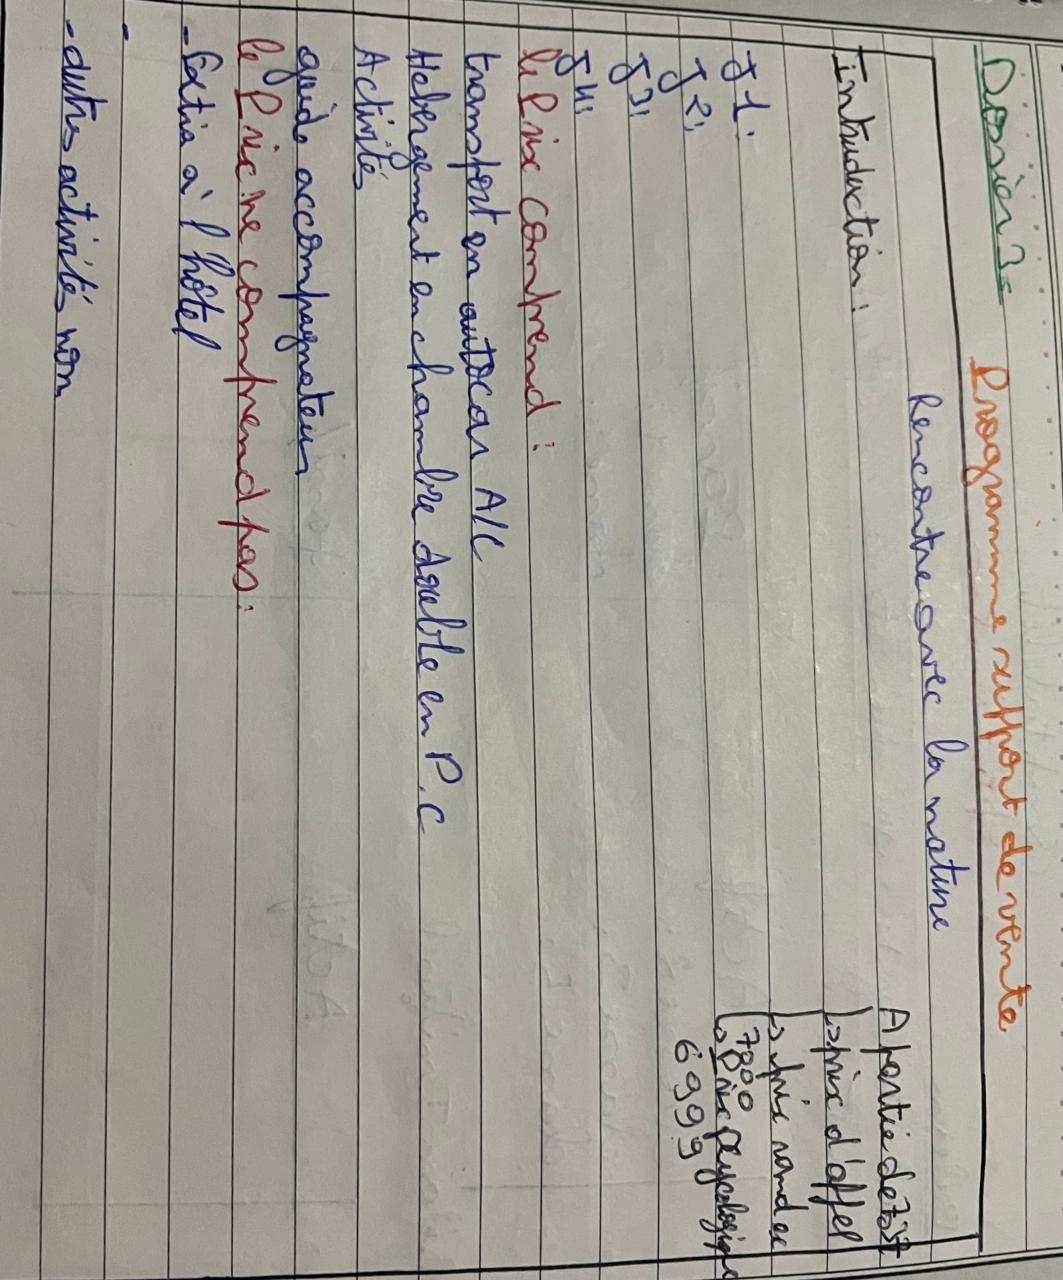 Dossier 3:
Programme support de vente
Rencontre avec la nature
Intruduction :
A partie de
↳ prix d'appel
↳ prix rond
7800
↳ Prix psycologique
6999
J1:
J2:
J3:
J4:
le Prix comprend :
transport en autocar A/C
Hebergement en chambre double en P.C
Activités
guide accompagnateur
le Prix ne comprend pas :
- Extra à l'hôtel
-
- autres activités non